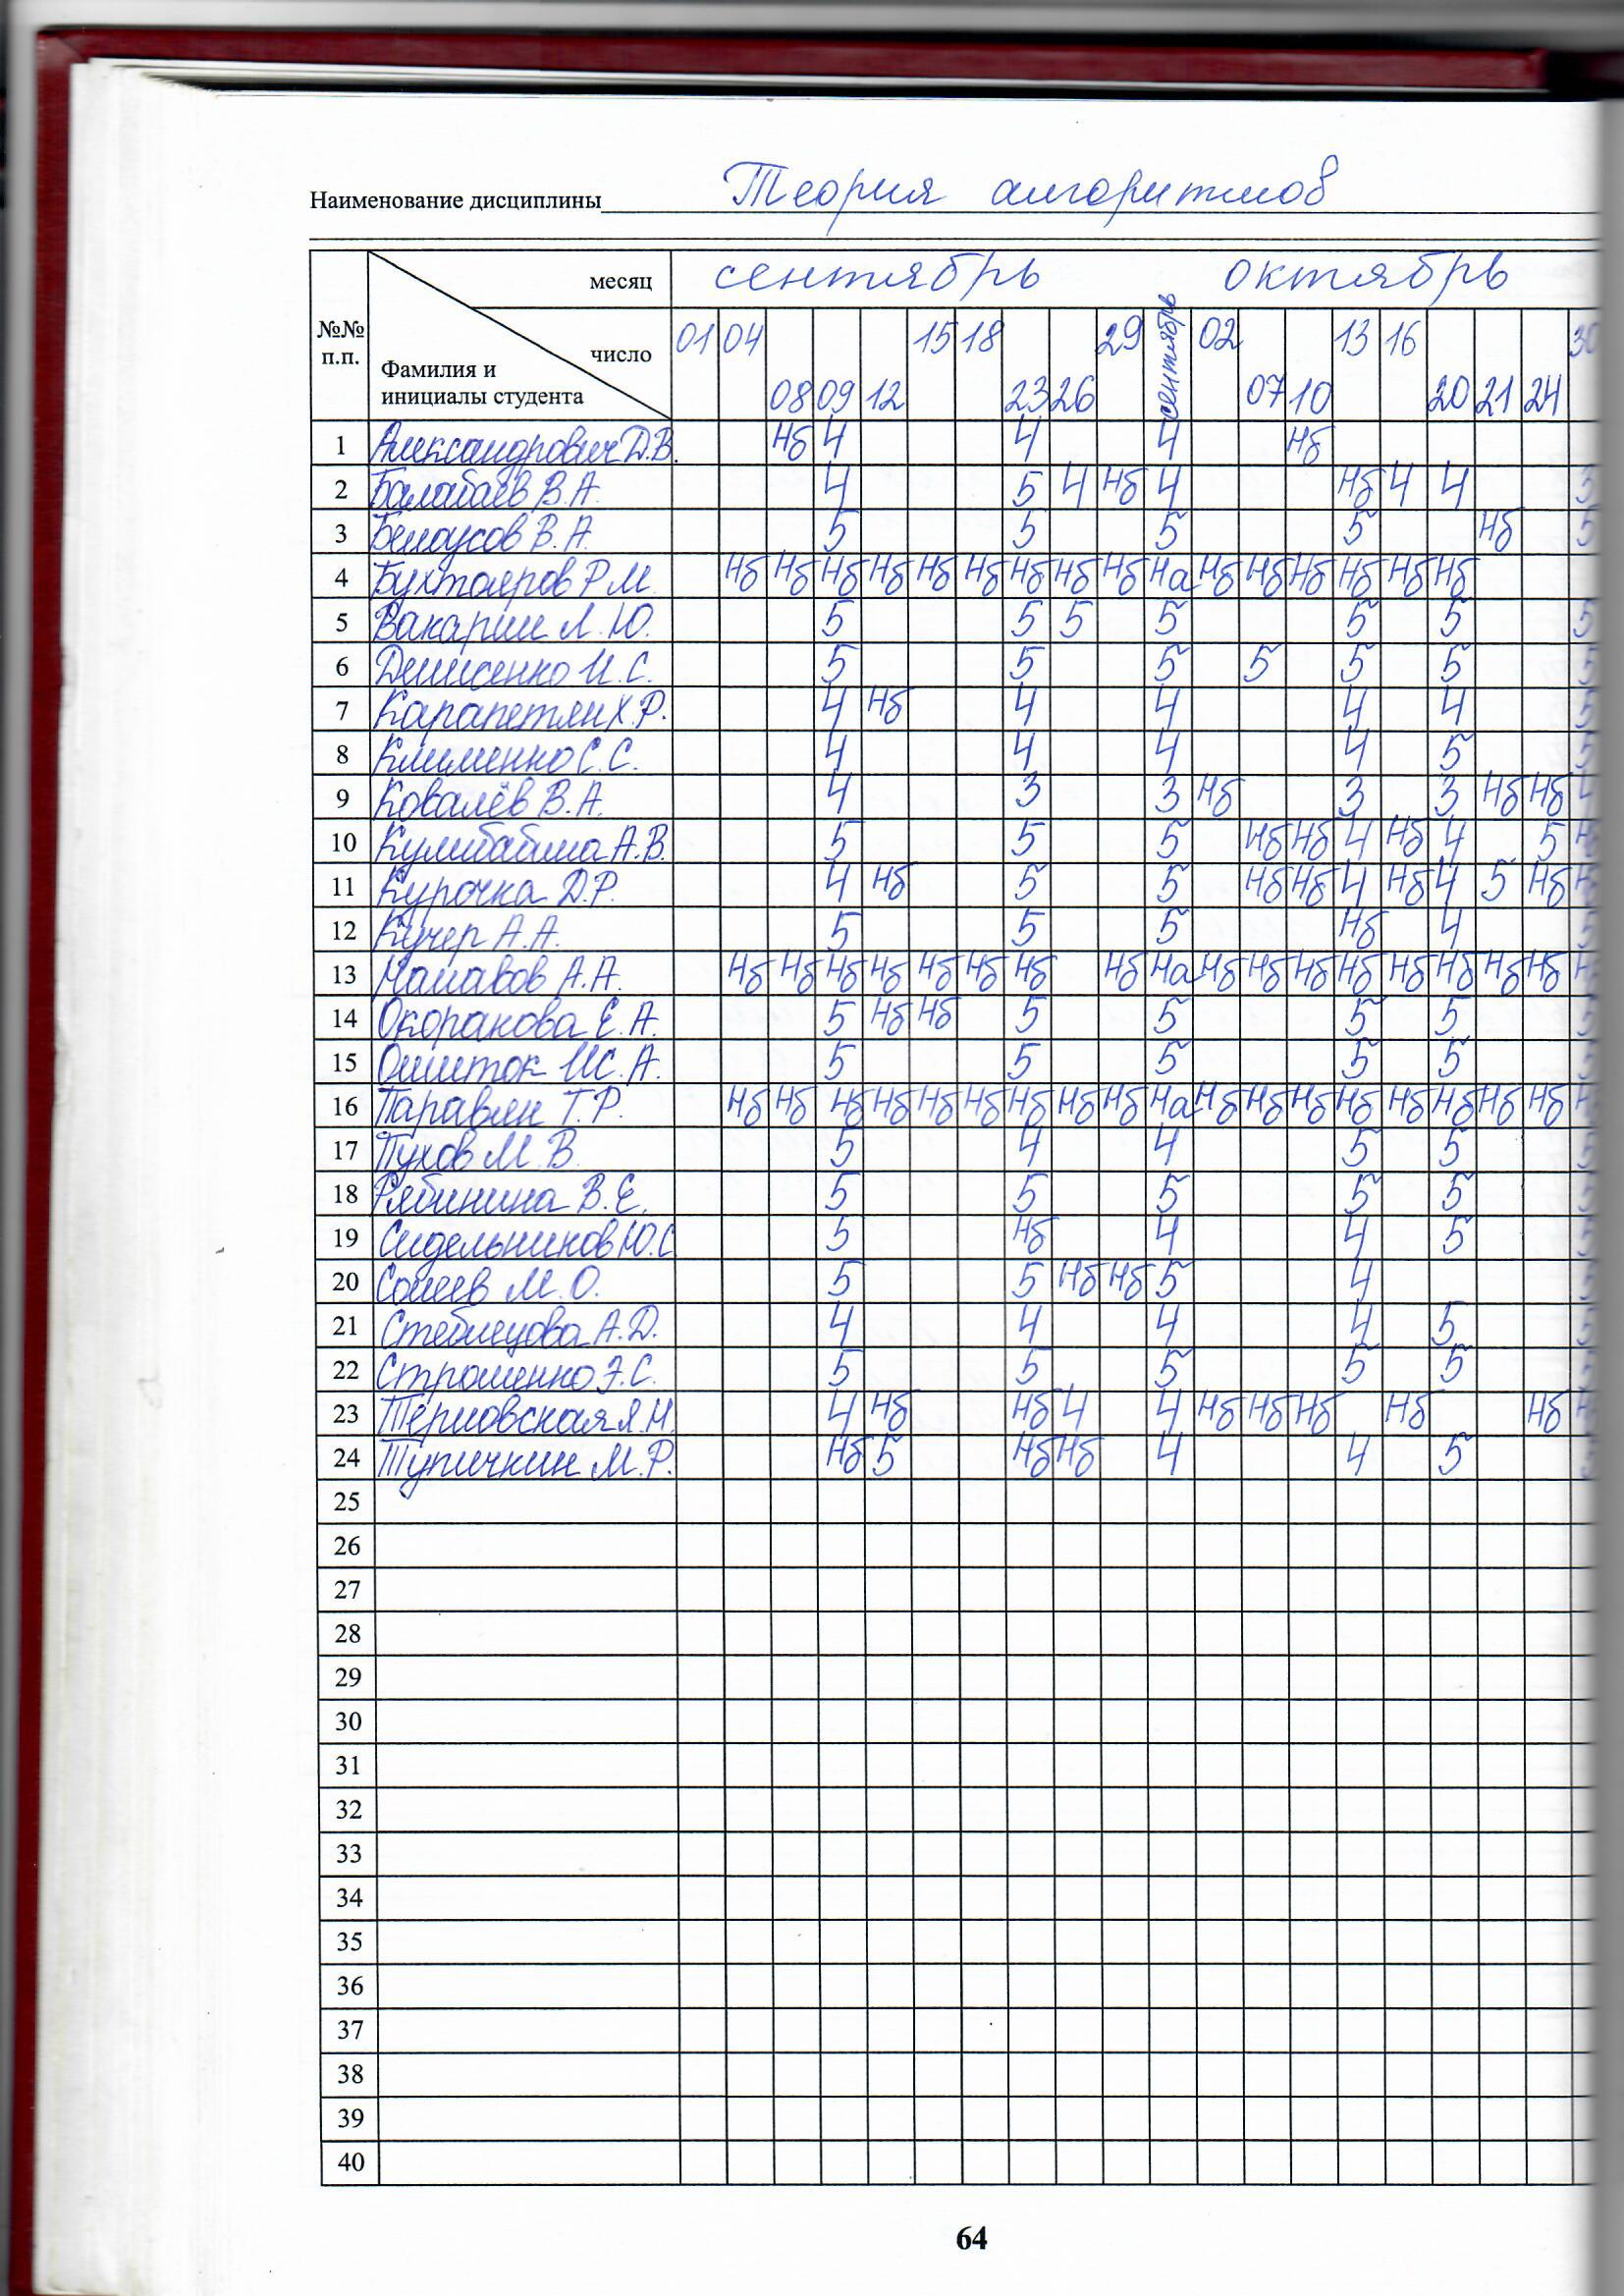 Наименование дисциплины Теория алгоритмов
месяц сентябрь октябрь
№№ п.п. Фамилия и инициалы студента число 01 04 08 09 12 15 18 23 26 29 сентябрь 02 07 10 13 16 20 21 24 30
1 Александрович Д.В. Нб 4 4 4 Нб
2 Балабаев В.А. 4 5 4 Нб 4 Нб 4 4
3 Белоусов В.А. 5 5 5 5 Нб 5
4 Бухтояров Р.М. Нб Нб Нб Нб Нб Нб Нб Нб Нб На Нб Нб Нб Нб Нб Нб
5 Вакарин Л.Ю. 5 5 5 5 5 5 5
6 Денисенко И.С. 5 5 5 5 5 5
7 Карапетян Х.Р. 4 Нб 4 4 4 4
8 Клименко С.С. 4 4 4 4 5
9 Ковалёв В.А. 4 3 3 Нб 3 3 Нб Нб
10 А.В. 5 5 5 Нб Нб 4 Нб 4 5
11 Курочка Д.Р. 4 Нб 5 5 Нб Нб 4 Нб 4 5 Нб
12 Кучер А.А. 5 5 5 Нб 4
13 А.А. Нб Нб Нб Нб Нб Нб Нб Нб На Нб Нб Нб Нб Нб Нб Нб Нб
14 Окоракова Е.А. 5 Нб Нб 5 5 5 5
15 5 5 5 5 5
16 Паравян Т.Р. Нб Нб Нб Нб Нб Нб Нб Нб Нб На Нб Нб Нб Нб Нб Нб Нб Нб
17 Пухов М.В. 5 4 4 5 5
18 Рябинина В.Е. 5 5 5 5 5
19 Сидельников Ю.С. 5 Нб 4 4 5
20 М.О. 5 5 Нб Нб 5 4
21 Стеблецова А.Д. 4 4 4 4 5
22 Строменко Э.С. 5 5 5 5 5
23 Терновская Л.Н. 4 Нб Нб 4 4 Нб Нб Нб Нб Нб
24 Тупичкин М.Р. Нб 5 Нб Нб 4 4 5
25
26
27
28
29
30
31
32
33
34
35
36
37
38
39
40
64